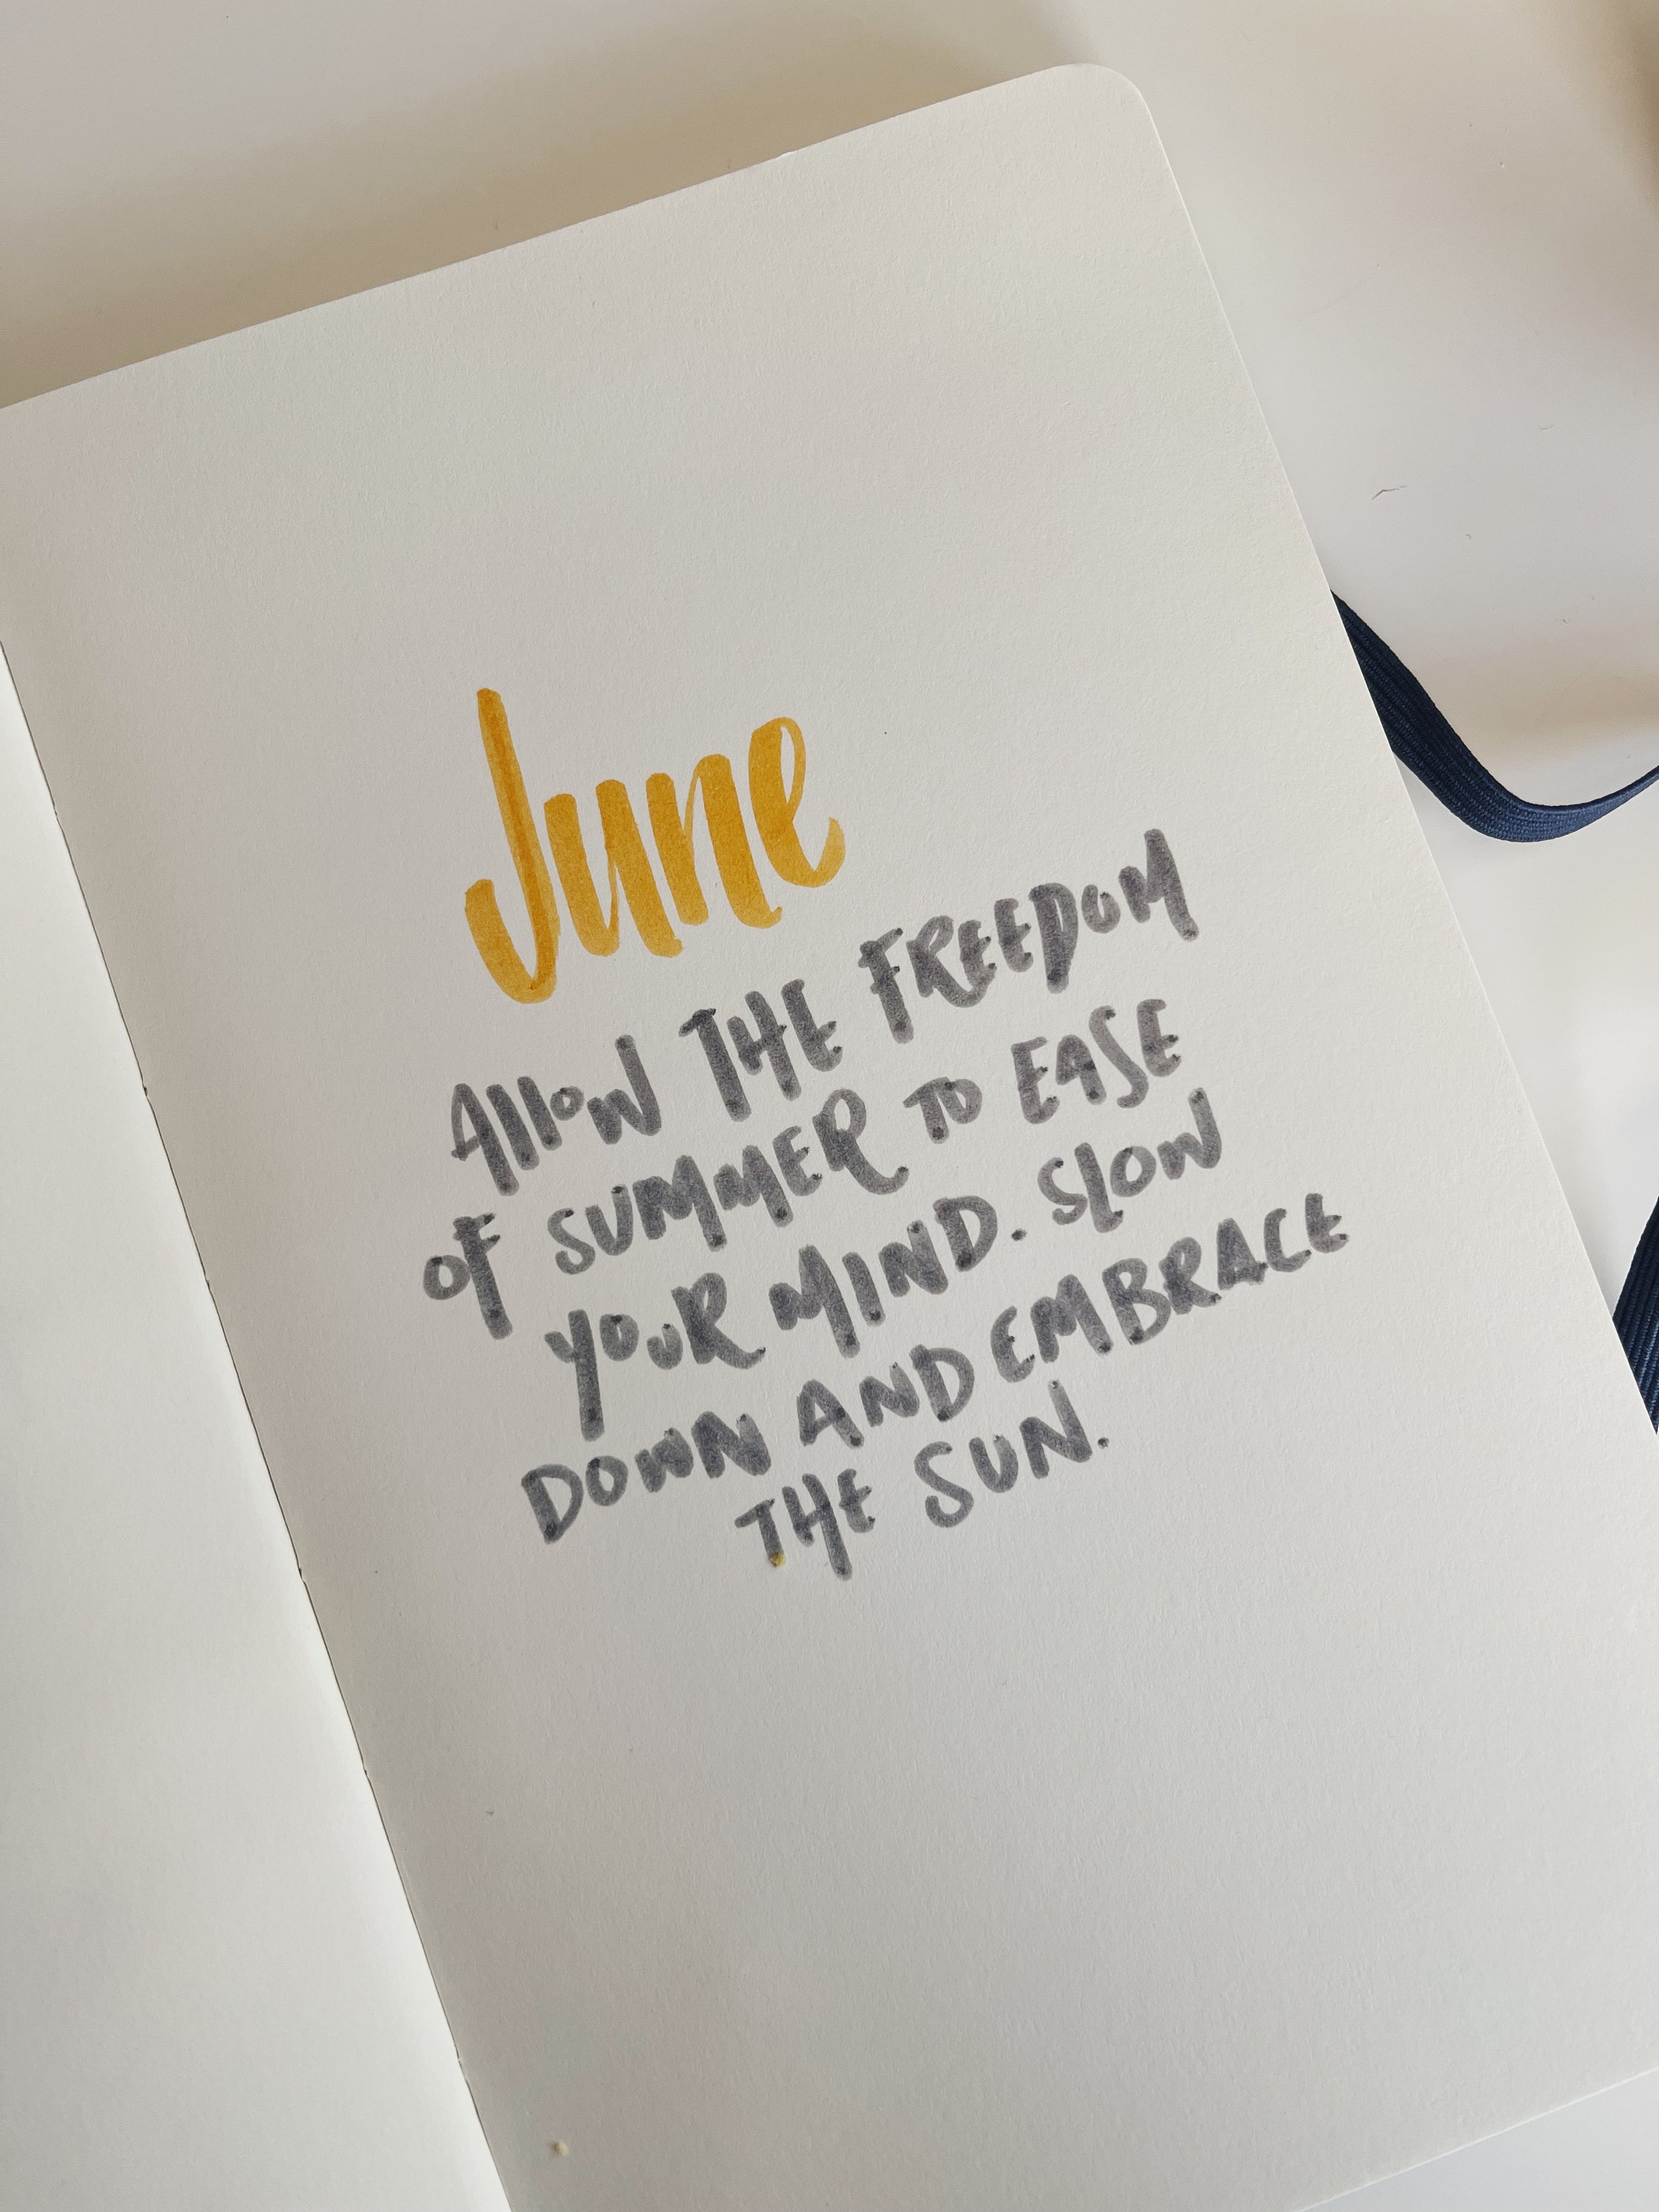 June
Allow THE FREEDOM
OF SUMMER TO EASE
YOUR MIND. SLOW
DOWN AND EMBRACE
THE SUN.